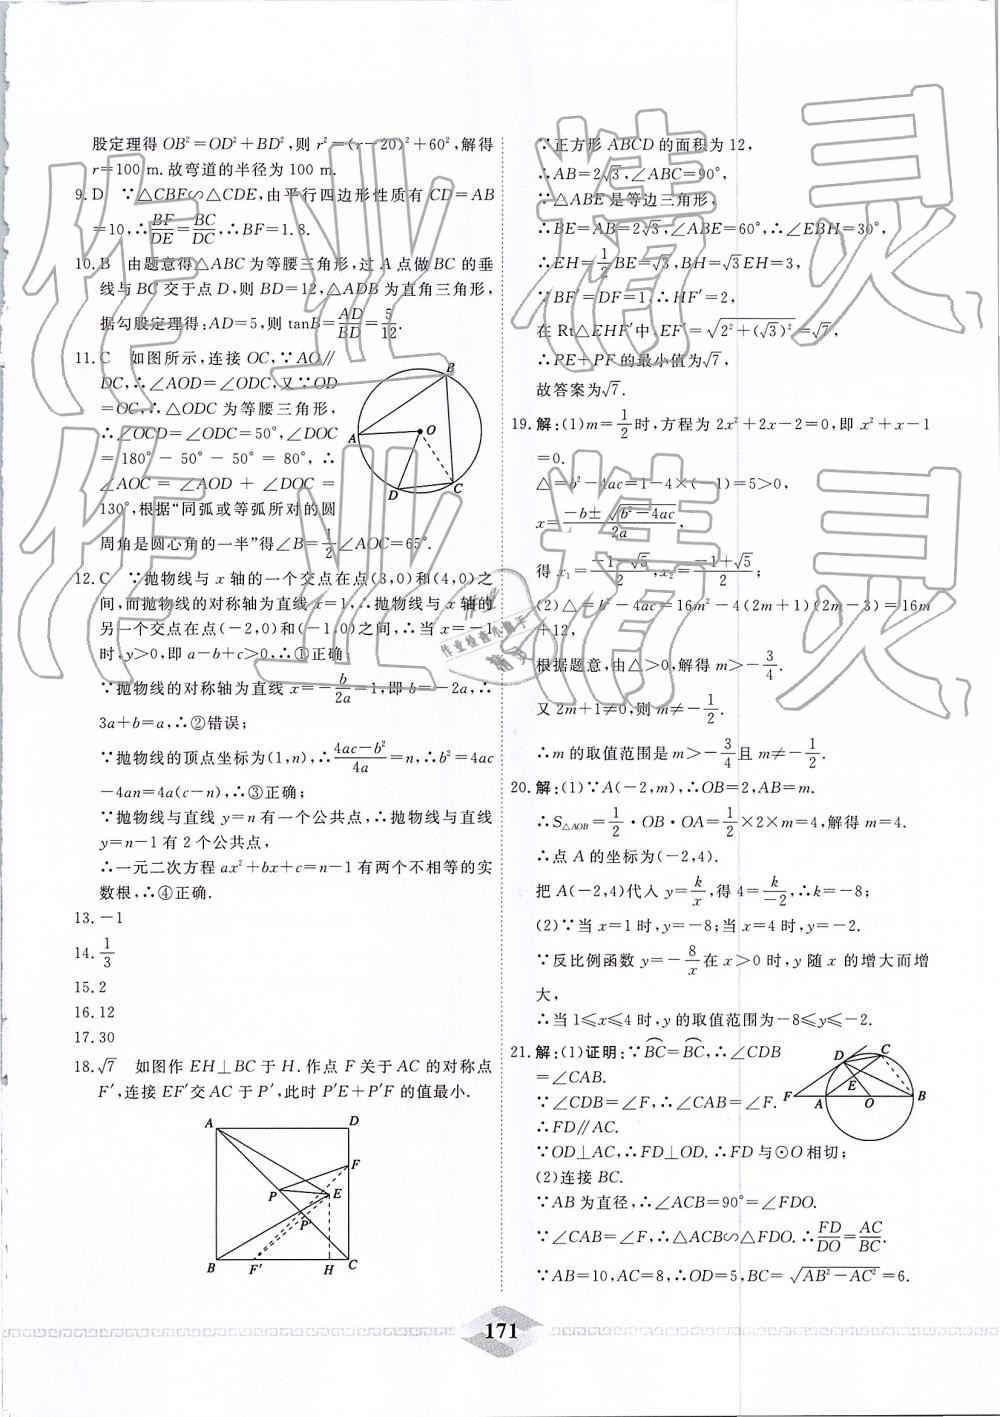 股定理得 OB²=OD²+BD²,则 r²=(r-20)²+60²,解得
r=100 m.故弯道的半径为 100 m.
9. D ∵△CBF∽△CDE,由平行四边形性质有 CD=AB
=10,∴BF/DE=BC/DC,∴BF=1.8.
10. B 由题意得△ABC 为等腰三角形,过 A 点做 BC 的垂
线与 BC 交于点 D,则 BD=12,△ADB 为直角三角形,
据勾股定理得:AD=5,则 tanB=AD/BD=5/12.
11. C 如图所示,连接 OC,∵AO∥
DC,∴∠AOD=∠ODC,又∵OD
=OC,∴△ODC 为等腰三角形,
∴∠OCD=∠ODC=50°,∠DOC
=180°-50°-50°=80°,∴
∠AOC=∠AOD+∠DOC=
130°,根据“同弧或等弧所对的圆
周角是圆心角的一半”得∠B=1/2∠AOC=65°.
B
A
O
D
C
12. C ∵抛物线与 x 轴的一个交点在点(3,0)和(4,0)之
间,而抛物线的对称轴为直线 x=1,∴抛物线与 x 轴的
另一个交点在点(-2,0)和(-1,0)之间,∴当 x=-1
时,y>0,即 a-b+c>0,∴①正确;
∵抛物线的对称轴为直线 x=-b/2a=1,即 b=-2a,∴
3a+b=a,∴②错误;
∵抛物线的顶点坐标为(1,n),∴(4ac-b²)/4a=n,∴b²=4ac
-4an=4a(c-n),∴③正确;
∵抛物线与直线 y=n 有一个公共点,∴抛物线与直线
y=n-1 有 2 个公共点,
∴一元二次方程 ax²+bx+c=n-1 有两个不相等的实
数根,∴④正确.
13. -1
14. 1/3
15. 2
16. 12
17. 30
18. √7 如图作 EH⊥BC 于 H.作点 F 关于 AC 的对称点
F′,连接 EF′交 AC 于 P′,此时 P′E+P′F 的值最小.
A
D
F
P
E
P′
B
F′
H
C
∵正方形 ABCD 的面积为 12,
∴AB=2√3,∠ABC=90°,
∵△ABE 是等边三角形,
∴BE=AB=2√3,∠ABE=60°,∴∠EBH=30°,
∴EH=1/2BE=√3,BH=√3EH=3,
∵BF′=DF=1,∴HF′=2,
在 Rt△EHF′中,EF′=√(2²+(√3)²)=√7,
∴PE+PF 的最小值为√7,
故答案为√7.
19. 解:(1)m=1/2时,方程为 2x²+2x-2=0,即 x²+x-1
=0.
△=b²-4ac=1-4×(-1)=5>0,
x=(-b±√(b²-4ac))/2a,
得 x₁=(-1-√5)/2,x₂=(-1+√5)/2;
(2)△=b²-4ac=16m²-4(2m+1)(2m-3)=16m
+12,
根据题意,由△>0,解得 m>-3/4.
又 2m+1≠0,则 m≠-1/2.
∴m 的取值范围是 m>-3/4且 m≠-1/2.
20. 解:(1)∵A(-2,m),∴OB=2,AB=m.
∴S△AOB=1/2·OB·OA=1/2×2×m=4,解得 m=4.
∴点 A 的坐标为(-2,4).
把 A(-2,4)代入 y=k/x,得 4=k/-2,∴k=-8;
(2)∵当 x=1 时,y=-8;当 x=4 时,y=-2.
∵反比例函数 y=-8/x在 x>0 时,y 随 x 的增大而增
大,
∴当 1⩽x⩽4 时,y 的取值范围为-8⩽y⩽-2.
21. 解:(1)证明:∵BC=BC,∴∠CDB
=∠CAB.
∵∠CDB=∠F,∴∠CAB=∠F.
∴FD∥AC.
∵OD⊥AC,∴FD⊥OD.∴FD 与⊙O 相切;
D
C
E
F
A
O
B
(2)连接 BC.
∵AB 为直径,∴∠ACB=90°=∠FDO.
∵∠CAB=∠F,∴△ACB∽△FDO.∴FD/DO=AC/BC.
∵AB=10,AC=8,∴OD=5,BC=√(AB²-AC²)=6.
171
作业精灵
作业精灵